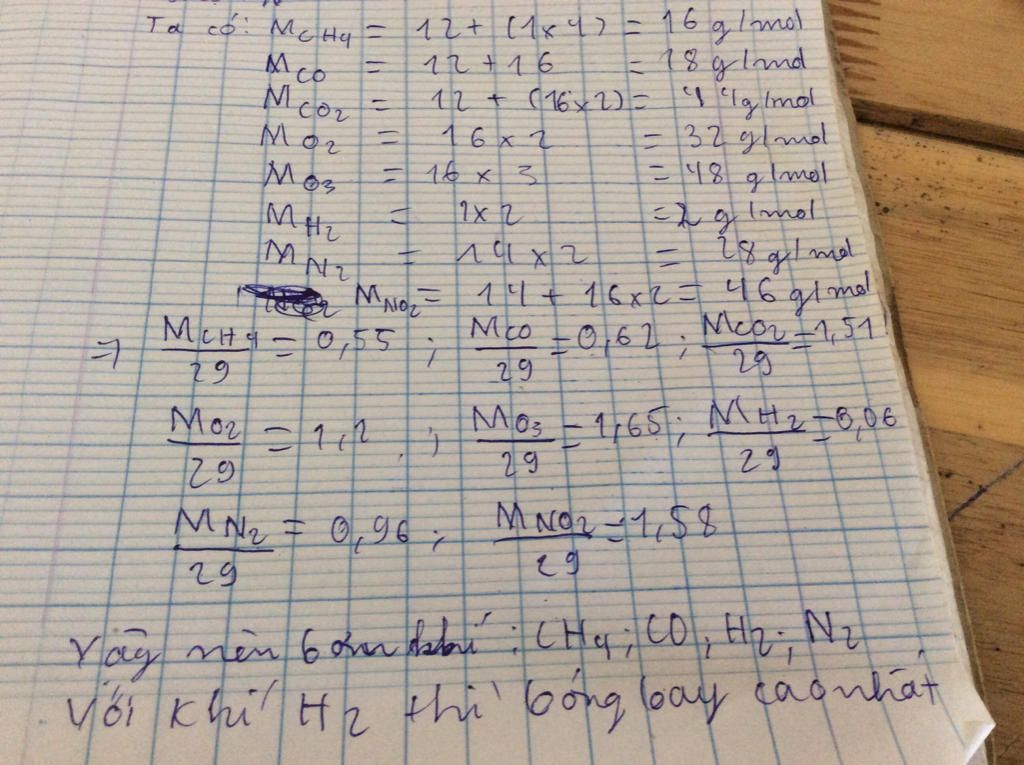 Ta có: M CH4 = 12 + (1x4) = 16 g/mol
M CO = 12 + 16 = 18 g/mol
M CO2 = 12 + (16x2) = 44g/mol
M O2 = 16 x 2 = 32 g/mol
M O3 = 16 x 3 = 48 g/mol
M H2 = 1x2 = 2 g/mol
M N2 = 14 x 2 = 28 g/mol
M NO2 = 14 + 16x2 = 46 g/mol
=> M CH4 / 29 = 0,55 ; M CO / 29 = 0,62 ; M CO2 / 29 = 1,51
M O2 / 29 = 1,1 ; M O3 / 29 = 1,65 ; M H2 / 29 = 0,06
M N2 / 29 = 0,96 ; M NO2 / 29 = 1,58
Vậy nên bơm khí : CH4 ; CO ; H2 ; N2
Với khí H2 thì bóng bay cao nhất